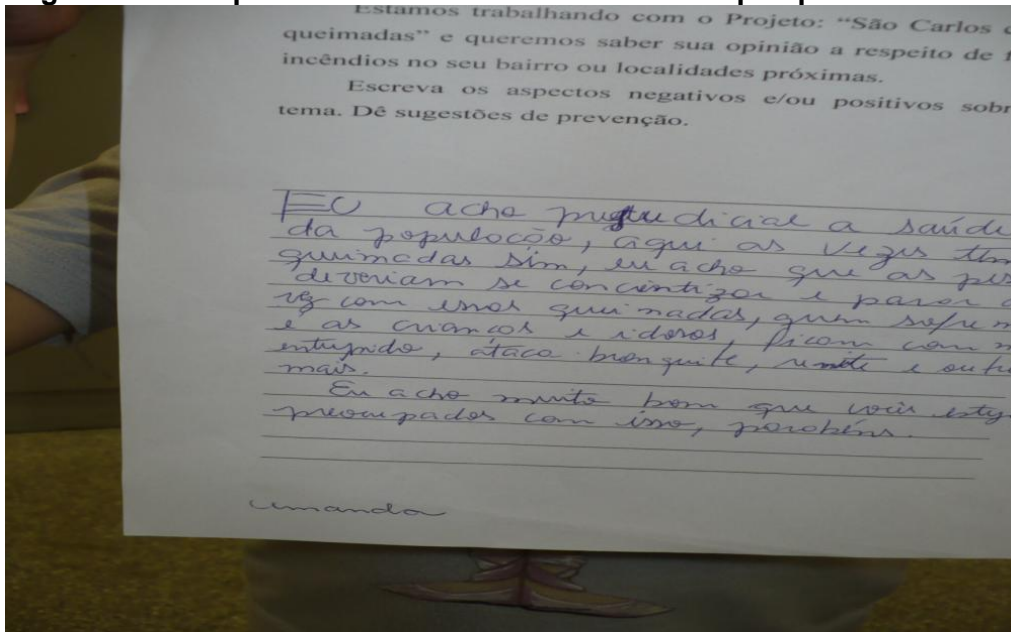 Estamos trabalhando com o Projeto: “São Carlos
queimadas” e queremos saber sua opinião a respeito de
incêndios no seu bairro ou localidades próximas.
Escreva os aspectos negativos e/ou positivos sobr
tema. Dê sugestões de prevenção.
EU acho prejudicial a saúde
da população, aqui as vezes tem
queimadas sim, eu acho que as pes
deveriam se concientizar e parar
vez com essas queimadas, quem sofre m
e as crianças e idosos, ficam com n
entupido, ataca bronquite, renite e outr
mais.
Eu acho muito bom que vocês estej
preocupados com isso, parabéns.
Amanda